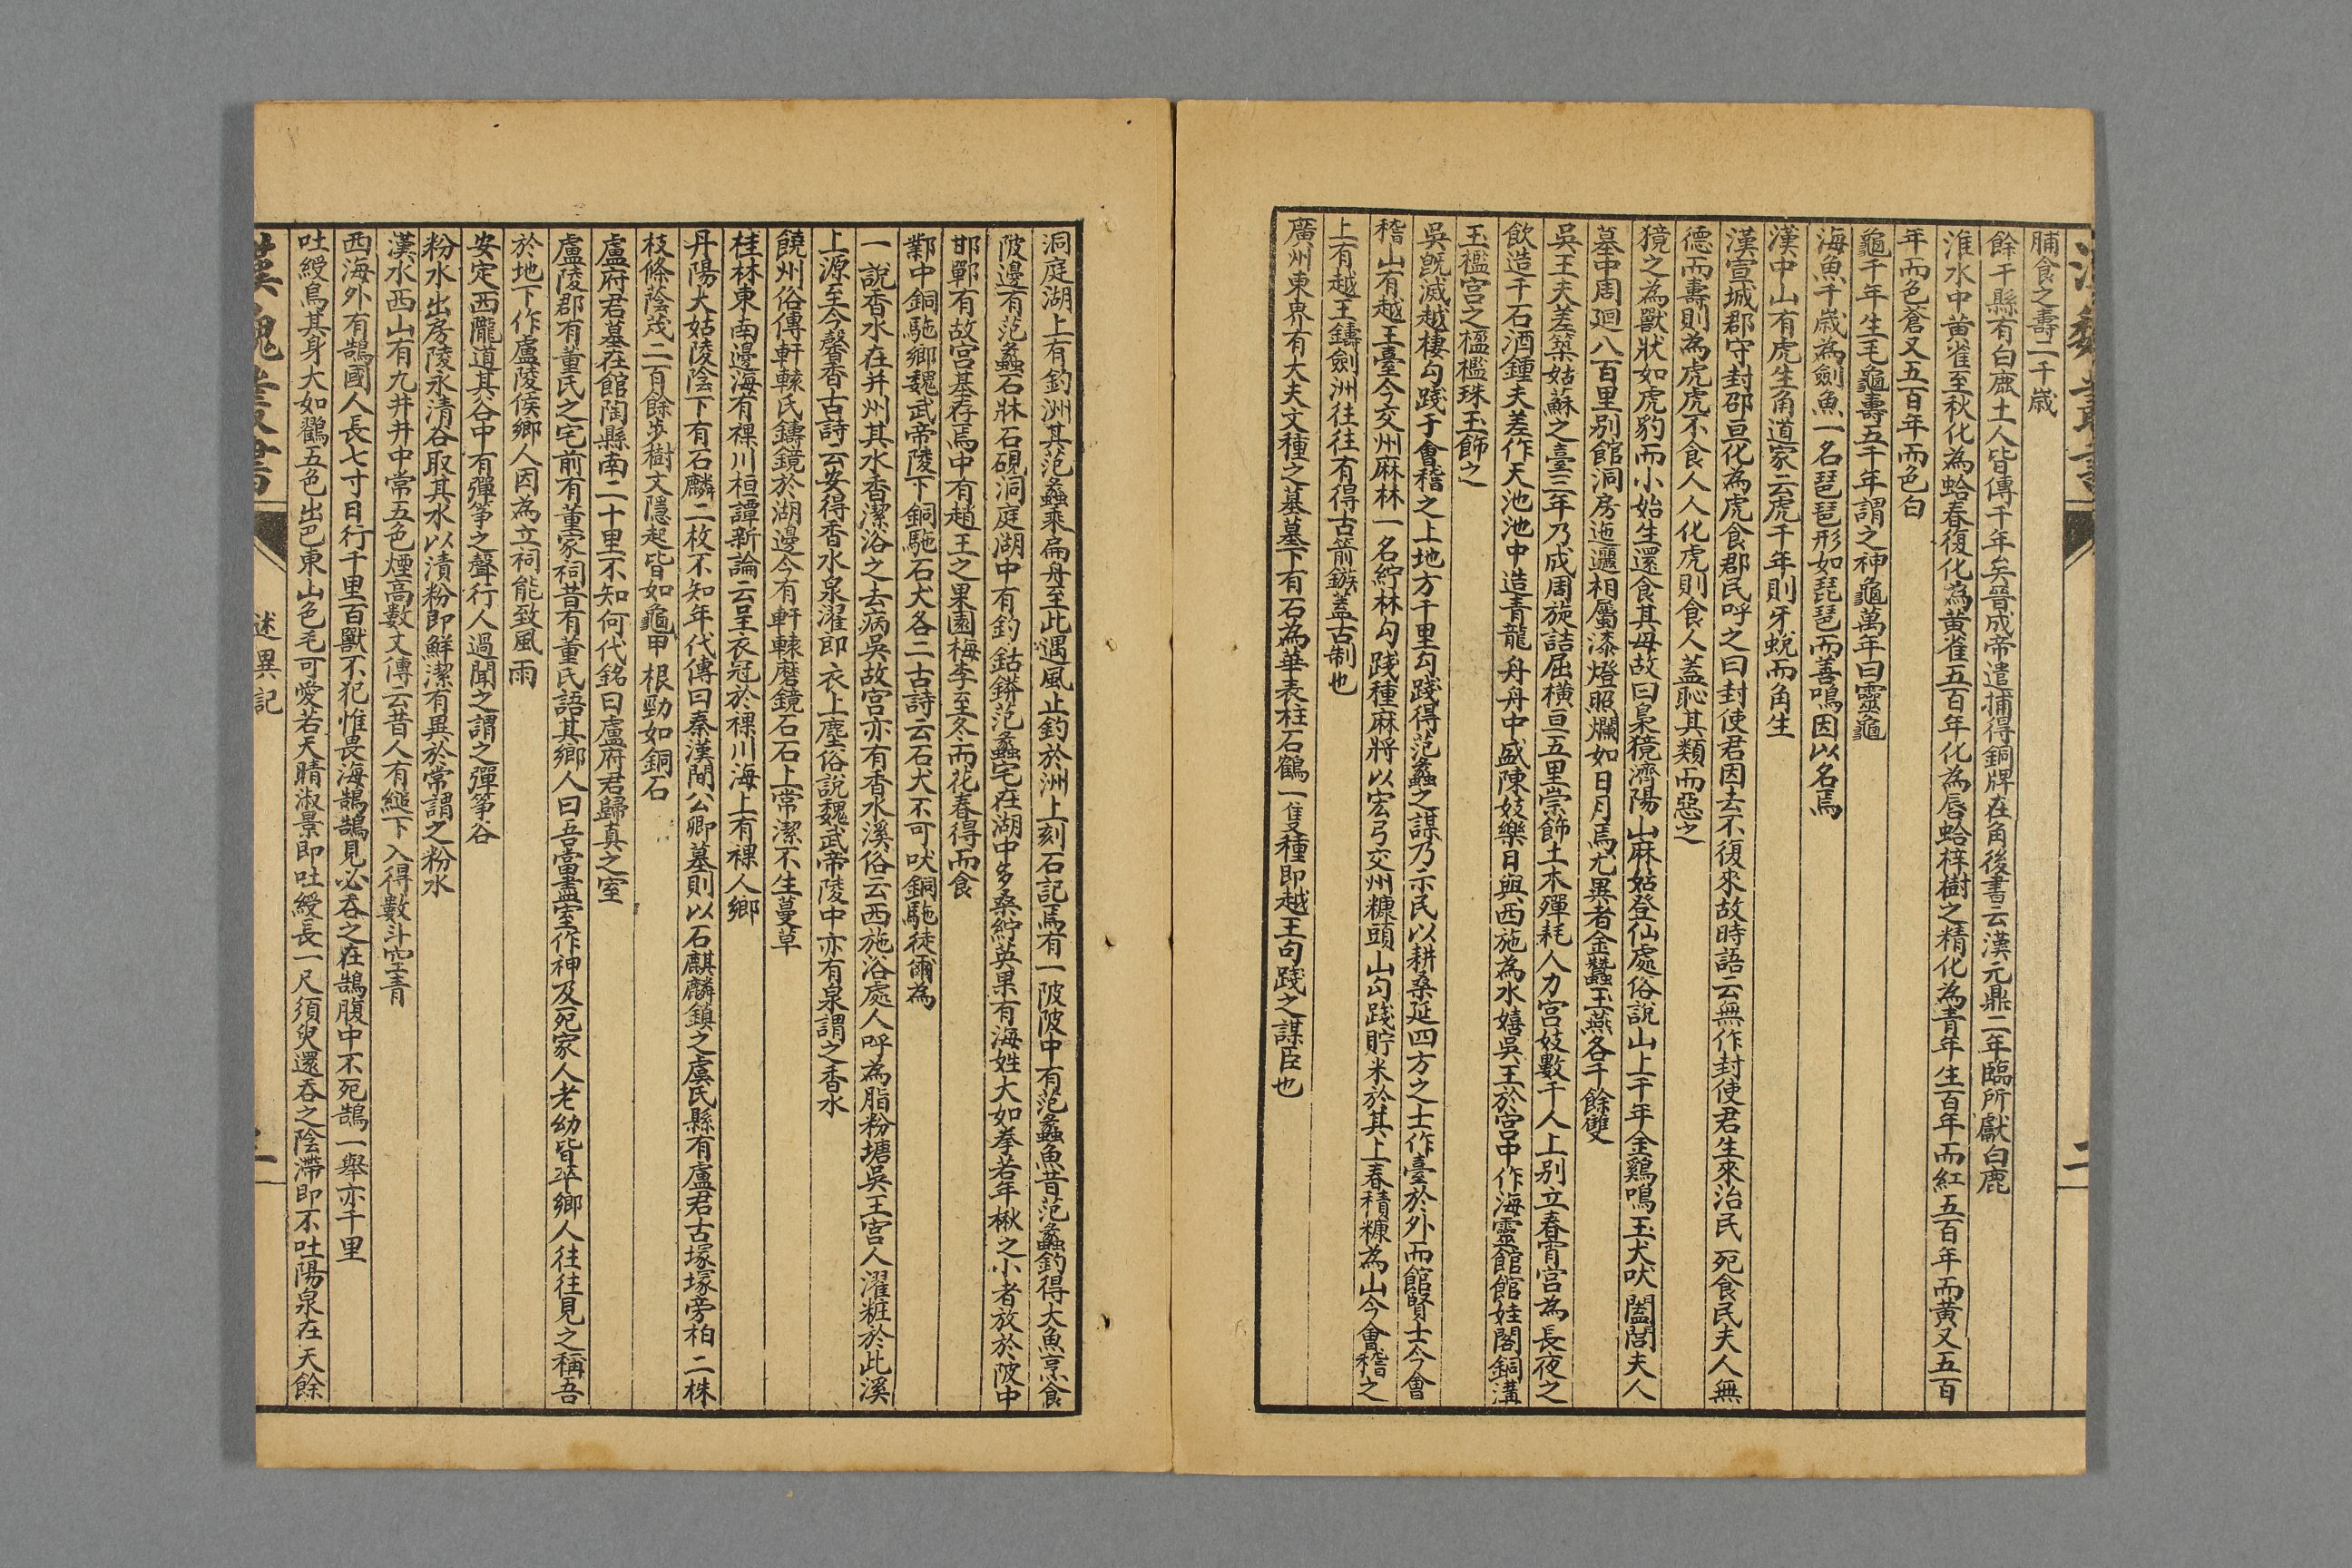 脯食之壽二千歳
餘干縣有白鹿土人皆傳千年矣晉成帝遣捕得銅牌在角後書云漢元鼎二年臨所獻白鹿
淮水中黄雀至秋化為蛤春復化為黄雀五百年化為唇蛤梓樹之精化為青年生百年而紅五百年而黄又五百
年而色蒼又五百年而色白
龜千年生毛龜壽五千年謂之神龜萬年曰靈龜
海魚千歳為劍魚一名琵琶形如琵琶而善鳴因以名焉
漢中山有虎生角道家云虎千年則牙蛻而角生
漢宣城郡守封邵旦化為虎食郡民呼之曰封使君因去不復來故時語云無作封使君生來治民死食民夫人無
德而壽則為虎虎不食人人化虎則食人蓋恥其類而惡之
獍之為獸狀如虎豹而小始生還食其母故曰梟獍濟陽山麻姑登仙處俗說山上千年金鷄鳴玉犬吠闔閭夫人
墓中周廻八百里别館洞房迤邐相屬漆燈照爛如日月焉尤異者金蠶玉燕各千餘雙
吳王夫差築姑蘇之臺三年乃成周旋詰屈橫亘五里崇飾土木殫耗人力宫妓數千人上别立春宵宫為長夜之
飲造千石酒鍾夫差作天池池中造青龍舟舟中盛陳妓樂日與西施為水嬉吳王於宫中作海靈館館娃閣銅溝
玉檻宫之楹檻珠玉飾之
吳旣滅越棲勾踐于會稽之上地方千里勾踐得范蠡之謀乃示民以耕桑延四方之士作臺於外而館賢士今會
稽山有越王臺今交州麻林一名紵林勾踐種麻將以宏弓交州糠頭山勾踐貯米於其上舂積糠為山今會稽之
上有越王鑄劍洲往往有得古箭鏃蓋古制也
廣州東界有大夫文種之墓墓下有石為華表柱石鶴一隻種即越王句踐之謀臣也
洞庭湖上有釣洲其范蠡乘扁舟至此遇風止釣於洲上刻石記焉有一陂陂中有范蠡魚昔范蠡釣得大魚亨食
陂邊有范蠡石牀石硯洞庭湖中有釣鈷䥈范蠡宅在湖中多桑紵英果有海姓大如拳若年楸之小者放於陂中
邯鄲有故宫基存焉中有趙王之果園梅李至冬而花春得而食
鄴中銅駞鄉魏武帝陵下銅駞石犬各二古詩云石犬不可吠銅駞徒爾為
一說香水在并州其水香潔浴之去病吳故宫亦有香水溪俗云西施浴處人呼為脂粉塘吳王宫人濯粧於此溪
上源至今馨香古詩云安得香水泉濯即衣上塵俗說魏武帝陵中亦有泉謂之香水
饒州俗傳軒轅氏鑄鏡於湖邊今有軒轅磨鏡石石上常潔不生蔓草
桂林東南邊海有裸川桓譚新論云呈衣冠於裸川海上有裸人鄉
丹陽大姑陵陰下有石麟二枚不知年代傳曰秦漢間公卿墓則以石麒麟鎮之虞氏縣有盧君古塚塚旁柏二株
枝條蔭茂二百餘步樹文隱起皆如龜甲根勁如銅石
盧府君墓在館陶縣南二十里不知何代銘曰盧府君歸真之室
盧陵郡有董氏之宅前有董家祠昔有董氏語其鄉人曰吾當盡室作神及死家人老幼皆卒鄉人往往見之稱吾
於地下作盧陵侯鄉人因為立祠能致風雨
安定西隴道其谷中有彈箏之聲行人過聞之謂之彈箏谷
粉水出房陵永清谷取其水以漬粉即鮮潔有異於常謂之粉水
漢水西山有九井井中常五色煙高數丈傳云昔人有縋下入得數斗空青
西海外有鵠國人長七寸日行千里百獸不犯惟畏海鵠鵠見必吞之在鵠腹中不死鵠一舉亦千里
吐綬鳥其身大如鸛五色出巴東山色毛可愛若天晴淑景即吐綬長一尺須臾還吞之陰滯即不吐陽泉在天餘
漢魏叢書
述異記